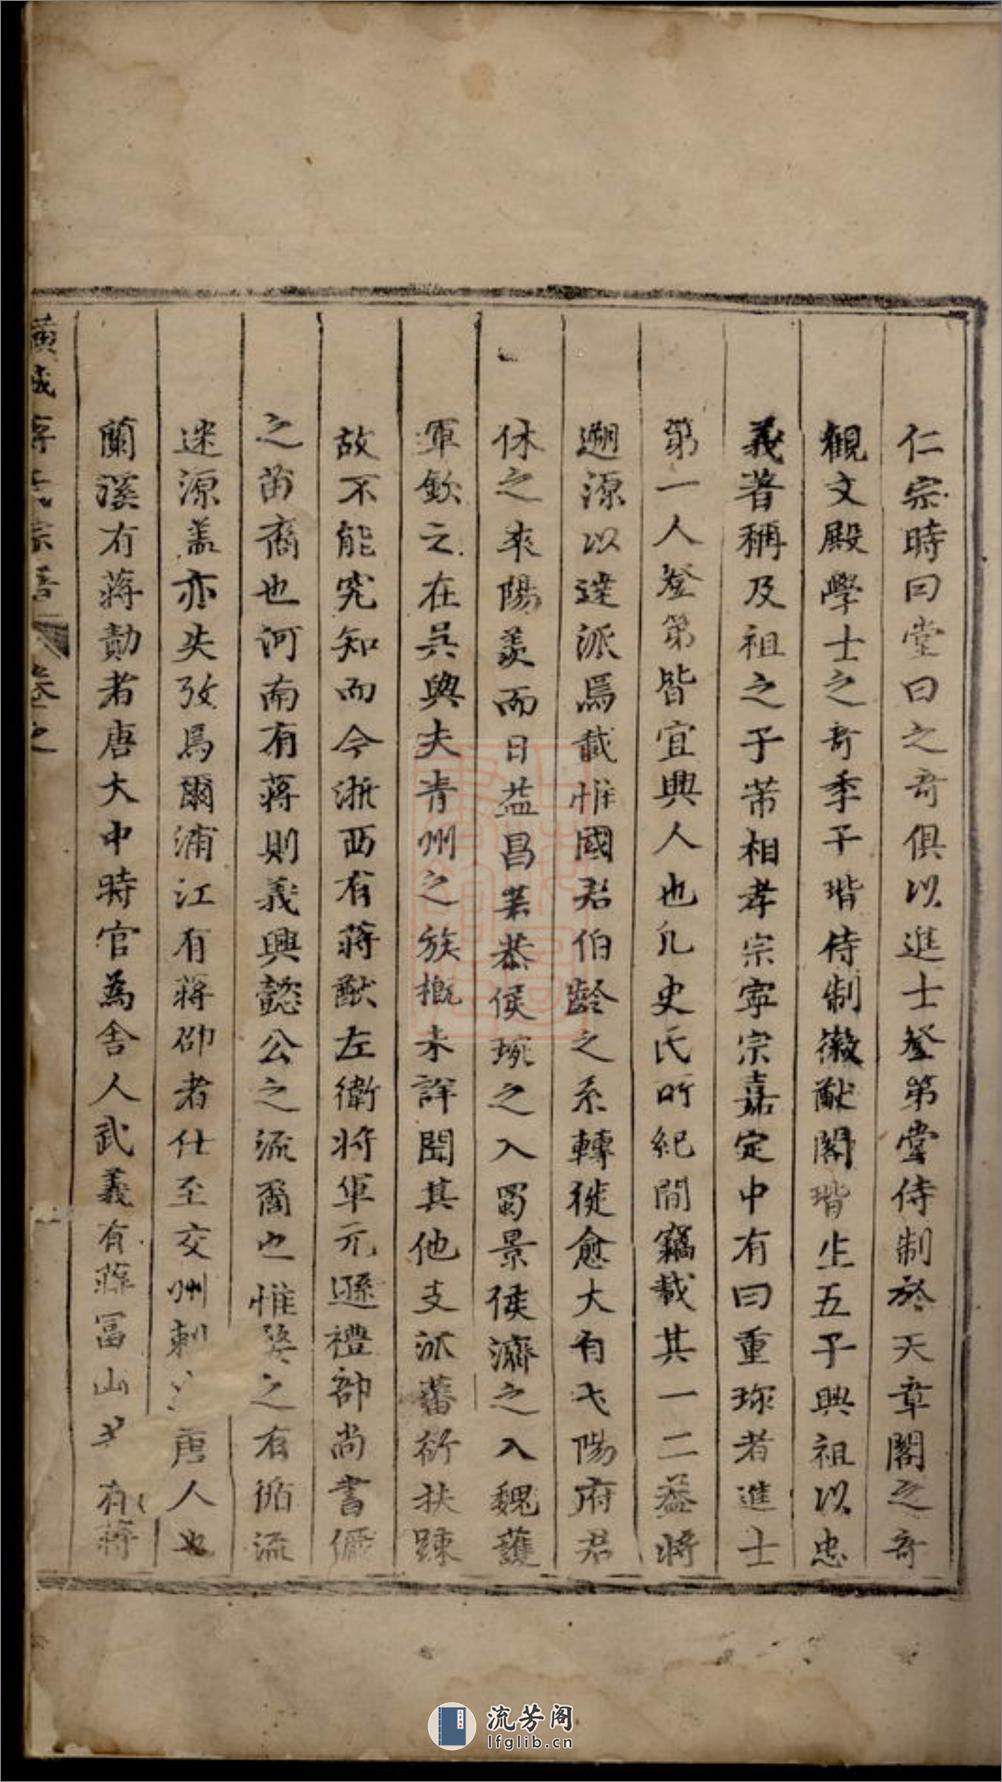 仁宗時曰堂曰之奇俱以進士登第堂侍制於天章閣之奇
觀文殿學士之奇季子瑎侍制徽猷閣瑎生五子興祖以忠
義著稱及祖之子芾相孝宗寧宗嘉定中有曰重珍者進士
第一人登第皆宜興人也凡史氏所紀間竊載其一二益將
遡源以達派焉哉惟國君伯齡之系轉徙愈大有弋陽府君
休之來陽羨而日益昌恭侯琬之入蜀景侯濟之入魏護
軍欽之在吳興夫青州之族概未詳聞其他支派蕃衍扶踈
故不能究知而今浙西有蔣猷左衛將軍元遜禮部尚書儼
之苗裔也河南有蔣則義興懿公之流裔也惟之有循流
迷源盖亦失攷焉爾浦江有蔣邵者仕至交州刺唐人也
蘭溪有蔣勣者唐大中時官為舍人武義有蔣冨山有蔣
橫城蔣氏宗譜 卷之
流芳阁
lfglib.cn